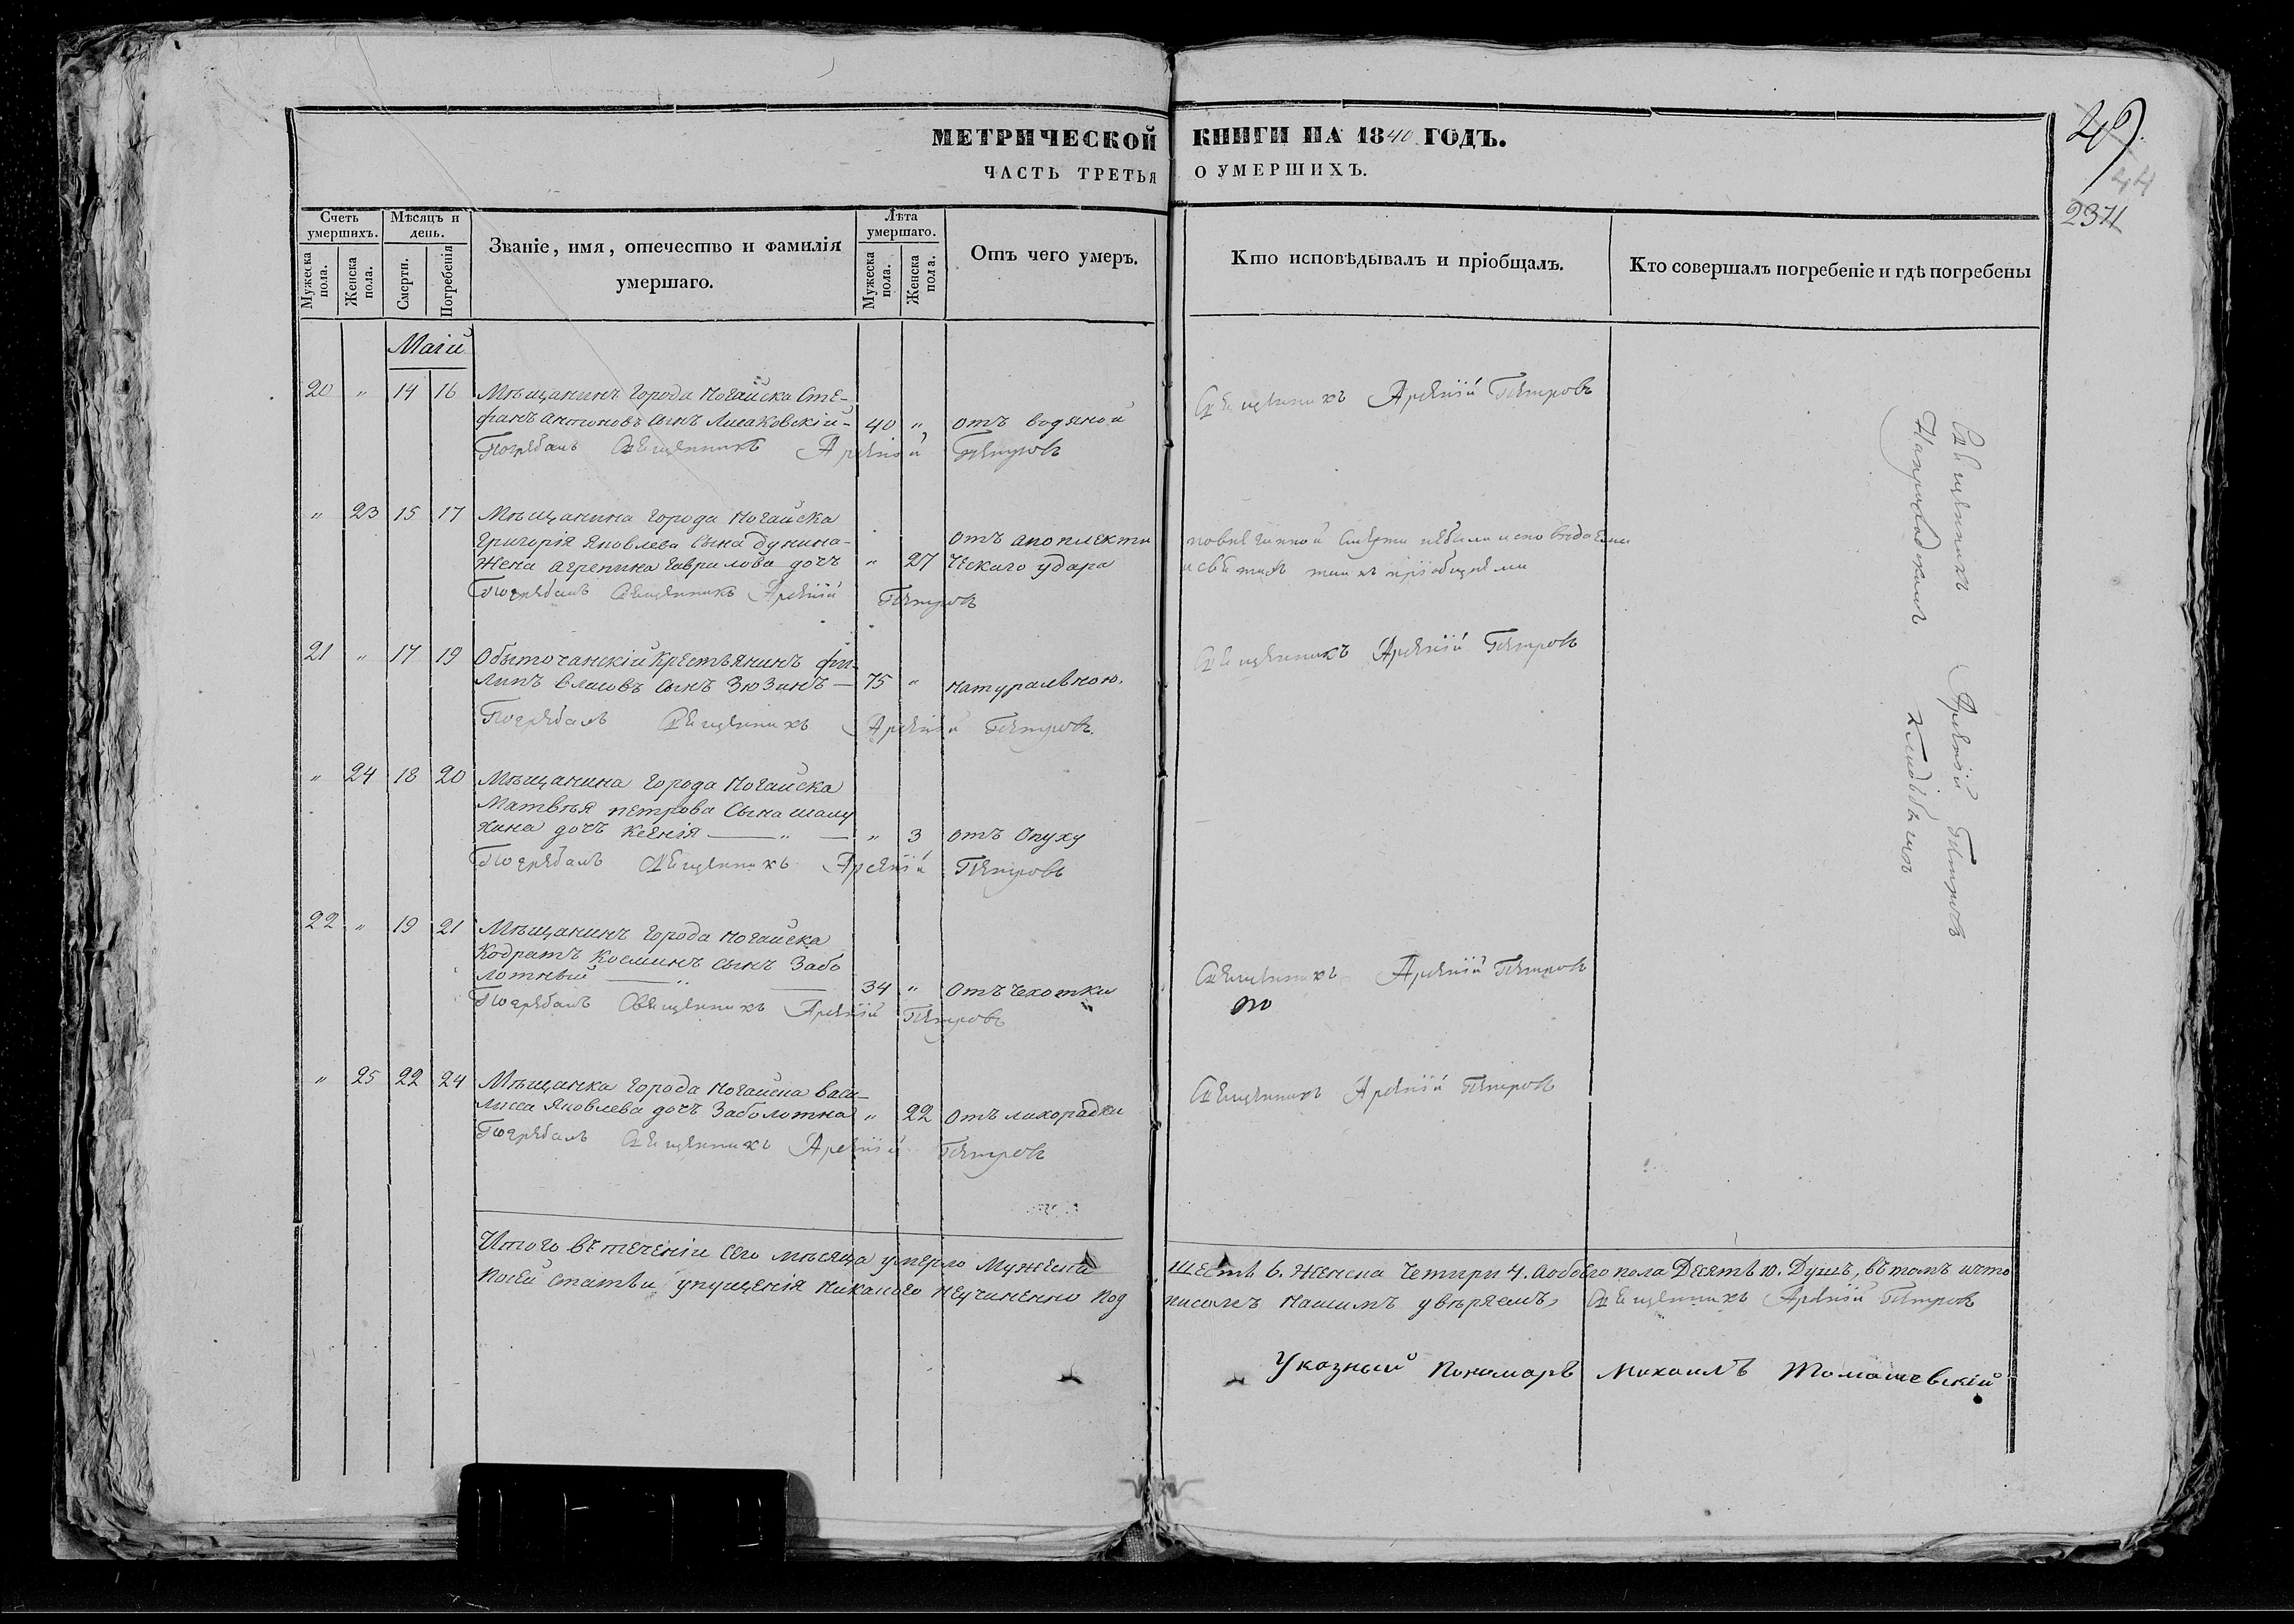 МЕТРИЧЕСКОЙ КНИГИ НА 1840 ГОДЪ.
ЧАСТЬ ТРЕТЬЯ О УМЕРШИХЪ.
44
237
Счетъ умершихъ.
Мѣсяцъ и день.
Званіе, имя, отечество и фамилія умершаго.
Лѣта умершаго.
Отъ чего умеръ.
Кто исповѣдывалъ и пріобщалъ.
Кто совершалъ погребеніе и гдѣ погребены
Мужеска пола.
Женска пола.
Смерти.
Погребенія
Мужеска пола.
Женска пола.
Маій
20 " 14 16 Мѣщанинъ города Ногайска Сте-
фанъ антоновъ сынъ Лисаковскій - 40 " отъ водяной
Священникъ Арсеній Петровъ
Погребалъ Священникъ Арсеній Петровъ
" 23 15 17 Мѣщанина города Ногайска
Григорія Яковлева сына Дунина-
жена агрепина гаврилова дочь " 27 отъ апоплекти
ческаго удара
Погребалъ Священникъ Арсеній Петровъ
21 " 17 19 Обыточанскій крестьянинъ фи-
липъ власовъ сынъ Зюзинъ — 75 " натуральною.
Священникъ Арсеній Петровъ
Погребалъ Священникъ Арсеній Петровъ.
" 24 18 20 Мѣщанина города Ногайска
Матвѣя петрова сына шалу
хина дочь Ксенія — " — " 3 отъ Опуху
Погребалъ Священникъ Арсеній Петровъ
22 " 19 21 Мѣщанинъ города Ногайска
Кодратъ Косминъ сынъ Забо
лотный — " — 34 " отъ чехотки
Священникъ Арсеній Петровъ
Погребалъ Священникъ Арсеній Петровъ
" 25 22 24 Мѣщанка города Ногайска васи-
лисса Яковлева дочь Заболотна " 22 отъ лихорадки
Священникъ Арсеній Петровъ
Погребалъ Священникъ Арсеній Петровъ
Священникъ Арсеній Петровъ
Итого въ теченіи сего мѣсяца умерло Мужеска шесть 6. Женска четыри 4. аобоего пола Десять 10. Душъ, въ томъ что
посей статьи упущенія никакого неучиненно под писомъ нашимъ увѣряемъ, Священникъ Арсеній Петровъ
Указный Пономарь Михаилъ Томашевскій